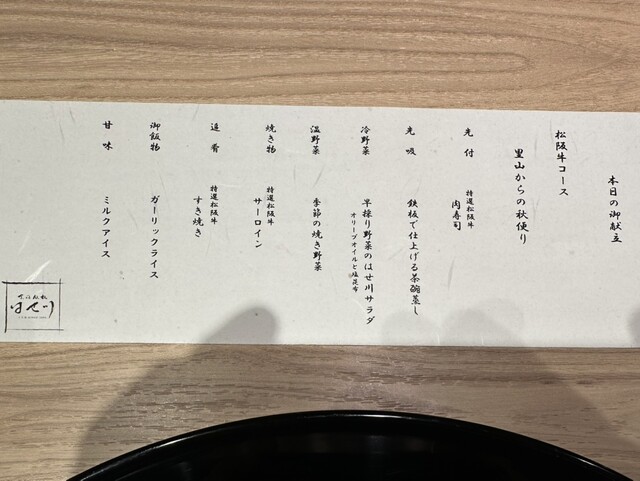 本日の御献立
松阪牛コース
里山からの秋便り
先付 特選松阪牛
肉寿司
先吸 鉄板で仕上げる茶碗蒸し
冷野菜 早採り野菜のはせ川サラダ
オリーブオイルと塩昆布
温野菜 季節の焼き野菜
焼き物 特選松阪牛
サーロイン
追肴 特選松阪牛
すき焼き
御飯物 ガーリックライス
甘味 ミルクアイス
はせ川